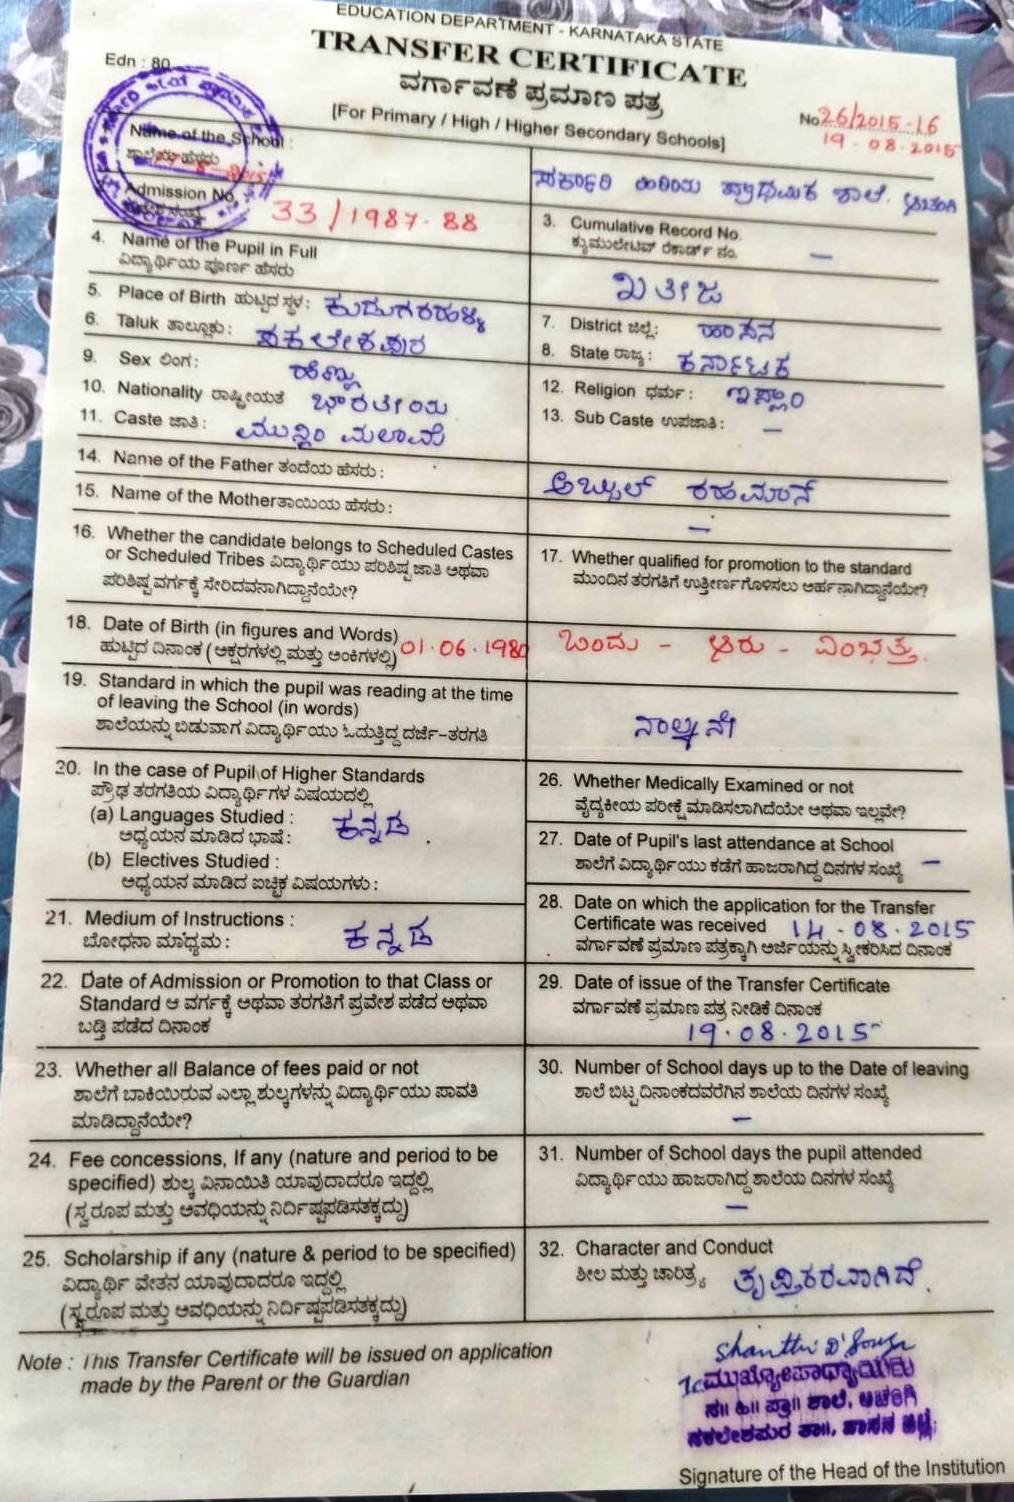 EDUCATION DEPARTMENT - KARNATAKA STATE
TRANSFER CERTIFICATE
Edn : 80
ವರ್ಗಾವಣೆ ಪ್ರಮಾಣ ಪತ್ರ
[For Primary / High / Higher Secondary Schools]
No 26/2015-16
19-08-2015
Name of the School :
ಶಾಲೆಯ ಹೆಸರು
ಸರ್ಕಾರಿ ಹಿರಿಯ ಪ್ರಾಥಮಿಕ ಶಾಲೆ.
Admission No.
33/1987-88
3. Cumulative Record No.
ಕ್ಯುಮುಲೇಟಿವ್ ರೆಕಾರ್ಡ್ ನಂ. —
4. Name of the Pupil in Full
ವಿದ್ಯಾರ್ಥಿಯ ಪೂರ್ಣ ಹೆಸರು
ಖತೀಜ
5. Place of Birth ಹುಟ್ಟಿದ ಸ್ಥಳ : ಕುಡುಗರಹಳ್ಳಿ
6. Taluk ತಾಲ್ಲೂಕು : ಸಕಲೇಶಪುರ
7. District ಜಿಲ್ಲೆ : ಹಾಸನ
8. State ರಾಜ್ಯ : ಕರ್ನಾಟಕ
9. Sex ಲಿಂಗ : ಹೆಣ್ಣು
10. Nationality ರಾಷ್ಟ್ರೀಯತೆ ಭಾರತೀಯ
11. Caste ಜಾತಿ : ಮುಸ್ಲಿಂ ಮಲಾಮೆ
12. Religion ಧರ್ಮ : ಇಸ್ಲಾಂ
13. Sub Caste ಉಪಜಾತಿ : —
14. Name of the Father ತಂದೆಯ ಹೆಸರು :
ಅಬ್ದುಲ್ ರಹಮಾನ್
15. Name of the Mother ತಾಯಿಯ ಹೆಸರು :
—
16. Whether the candidate belongs to Scheduled Castes
or Scheduled Tribes ವಿದ್ಯಾರ್ಥಿಯು ಪರಿಶಿಷ್ಟ ಜಾತಿ ಅಥವಾ
ಪರಿಶಿಷ್ಟ ವರ್ಗಕ್ಕೆ ಸೇರಿದವನಾಗಿದ್ದಾನೆಯೇ?
17. Whether qualified for promotion to the standard
ಮುಂದಿನ ತರಗತಿಗೆ ಉತ್ತೀರ್ಣಗೊಳಿಸಲು ಅರ್ಹನಾಗಿದ್ದಾನೆಯೇ?
18. Date of Birth (in figures and Words)
ಹುಟ್ಟಿದ ದಿನಾಂಕ (ಅಕ್ಷರಗಳಲ್ಲಿ ಮತ್ತು ಅಂಕಿಗಳಲ್ಲಿ) 01.06.1980 ಒಂದು - ಆರು - ಎಂಭತ್ತು.
19. Standard in which the pupil was reading at the time
of leaving the School (in words)
ಶಾಲೆಯನ್ನು ಬಿಡುವಾಗ ವಿದ್ಯಾರ್ಥಿಯು ಓದುತ್ತಿದ್ದ ದರ್ಜೆ-ತರಗತಿ
ನಾಲ್ಕನೇ
20. In the case of Pupil of Higher Standards
ಪ್ರೌಢ ತರಗತಿಯ ವಿದ್ಯಾರ್ಥಿಗಳ ವಿಷಯದಲ್ಲಿ
(a) Languages Studied :
ಅಧ್ಯಯನ ಮಾಡಿದ ಭಾಷೆ : ಕನ್ನಡ .
(b) Electives Studied :
ಅಧ್ಯಯನ ಮಾಡಿದ ಐಚ್ಛಿಕ ವಿಷಯಗಳು :
21. Medium of Instructions :
ಬೋಧನಾ ಮಾಧ್ಯಮ : ಕನ್ನಡ
22. Date of Admission or Promotion to that Class or
Standard ಆ ವರ್ಗಕ್ಕೆ ಅಥವಾ ತರಗತಿಗೆ ಪ್ರವೇಶ ಪಡೆದ ಅಥವಾ
ಬಡ್ತಿ ಪಡೆದ ದಿನಾಂಕ
23. Whether all Balance of fees paid or not
ಶಾಲೆಗೆ ಬಾಕಿಯಿರುವ ಎಲ್ಲಾ ಶುಲ್ಕಗಳನ್ನು ವಿದ್ಯಾರ್ಥಿಯು ಪಾವತಿ
ಮಾಡಿದ್ದಾನೆಯೇ?
24. Fee concessions, If any (nature and period to be
specified) ಶುಲ್ಕ ವಿನಾಯಿತಿ ಯಾವುದಾದರೂ ಇದ್ದಲ್ಲಿ
(ಸ್ವರೂಪ ಮತ್ತು ಅವಧಿಯನ್ನು ನಿರ್ದಿಷ್ಟಪಡಿಸತಕ್ಕದ್ದು)
25. Scholarship if any (nature & period to be specified)
ವಿದ್ಯಾರ್ಥಿ ವೇತನ ಯಾವುದಾದರೂ ಇದ್ದಲ್ಲಿ
(ಸ್ವರೂಪ ಮತ್ತು ಅವಧಿಯನ್ನು ನಿರ್ದಿಷ್ಟಪಡಿಸತಕ್ಕದ್ದು)
26. Whether Medically Examined or not
ವೈದ್ಯಕೀಯ ಪರೀಕ್ಷೆ ಮಾಡಿಸಲಾಗಿದೆಯೇ ಅಥವಾ ಇಲ್ಲವೇ?
27. Date of Pupil's last attendance at School
ಶಾಲೆಗೆ ವಿದ್ಯಾರ್ಥಿಯು ಕಡೆಗೆ ಹಾಜರಾಗಿದ್ದ ದಿನಗಳ ಸಂಖ್ಯೆ —
28. Date on which the application for the Transfer
Certificate was received 14-08-2015
ವರ್ಗಾವಣೆ ಪ್ರಮಾಣ ಪತ್ರಕ್ಕಾಗಿ ಅರ್ಜಿಯನ್ನು ಸ್ವೀಕರಿಸಿದ ದಿನಾಂಕ
29. Date of issue of the Transfer Certificate
ವರ್ಗಾವಣೆ ಪ್ರಮಾಣ ಪತ್ರ ನೀಡಿಕೆ ದಿನಾಂಕ
19.08.2015
30. Number of School days up to the Date of leaving
ಶಾಲೆ ಬಿಟ್ಟ ದಿನಾಂಕದವರೆಗಿನ ಶಾಲೆಯ ದಿನಗಳ ಸಂಖ್ಯೆ
—
31. Number of School days the pupil attended
ವಿದ್ಯಾರ್ಥಿಯು ಹಾಜರಾಗಿದ್ದ ಶಾಲೆಯ ದಿನಗಳ ಸಂಖ್ಯೆ
—
32. Character and Conduct
ಶೀಲ ಮತ್ತು ಚಾರಿತ್ರ್ಯ ತೃಪ್ತಿಕರವಾಗಿದೆ.
Note : This Transfer Certificate will be issued on application
made by the Parent or the Guardian
Shanthi D'Souza
ಮುಖ್ಯೋಪಾಧ್ಯಾಯರು
ಸ॥ ಹಿ॥ ಪ್ರಾ॥ ಶಾಲೆ,
ಸಕಲೇಶಪುರ ತಾ॥, ಹಾಸನ ಜಿಲ್ಲೆ
Signature of the Head of the Institution